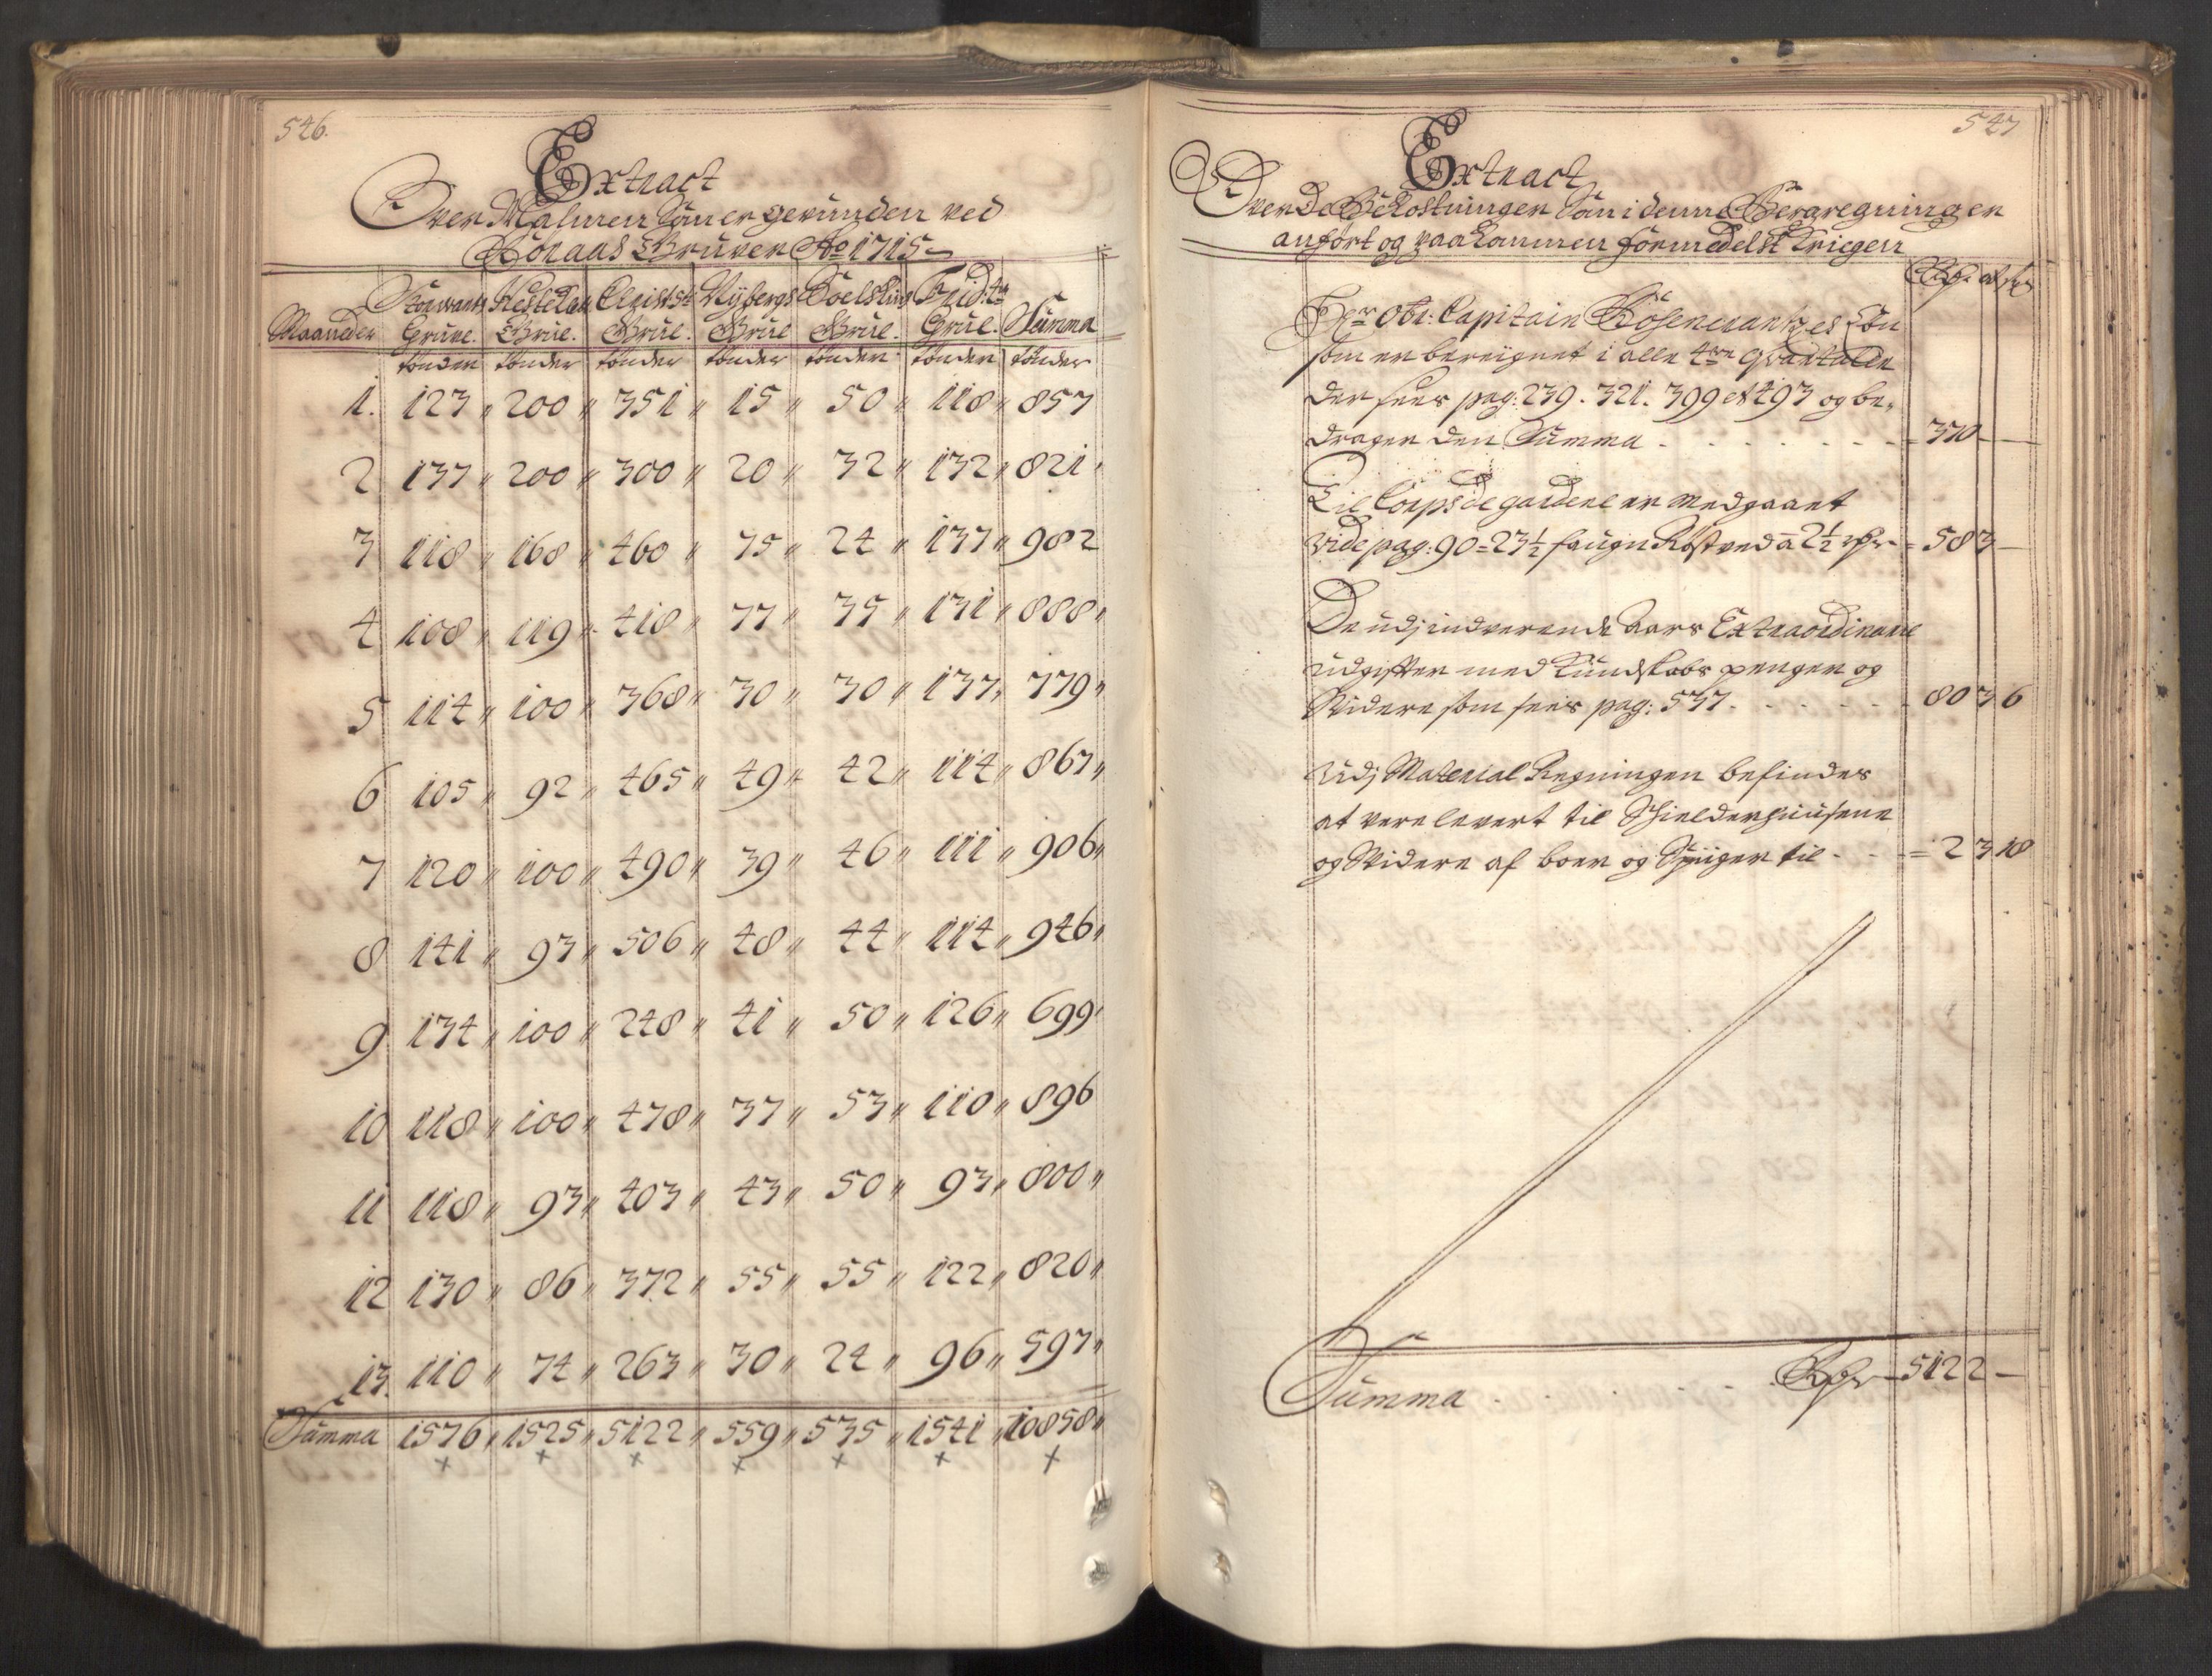 546.
Extract
Over Malmen Som er gevunden ved
Röraas Gruver Ao 1715
Maaneder Storvarts Grue. Hestekla Grue. Christ: Se: Grue. Nÿbergs Grue Soelskins Grue. Frid: 4te Grue. Summa
tönder tönder tönder tönder tönder tönder tönder
1. 123 " 200 " 351 " 15 " 50 " 118 " 857
2 137 " 200 " 300 " 20 " 32 " 132 " 821 "
3 118 " 168 " 460 " 75 " 24 " 137 " 982
4 108 " 119 " 418 " 77 " 35 " 131 " 888 "
5 114 " 100 " 368 " 30 " 30 " 137 " 779 "
6 105 " 92 " 465 " 49 " 42 " 114 " 867 "
7 120 " 100 " 490 " 39 " 46 " 111 " 906 "
8 141 " 93 " 506 " 48 " 44 " 114 " 946 "
9 134 " 100 " 248 " 41 " 50 " 126 " 699 "
10 118 " 100 " 478 " 37 " 53 " 110 " 896
11 118 " 93 " 403 " 43 " 50 " 93 " 800 "
12 130 " 86 " 372 " 55 " 55 " 122 " 820 "
13. 110 " 74 " 263 " 30 " 24 " 96 " 597 "
Summa 1576 " 1525 " 5122 " 559 " 535 " 1541 " 10858 "
547
Extract
Over De Bekostninger Som i denne Bergregninger
anfört og paakommen formedelst Krigen
Hr Obr: Capitain Rosencrantzes Lön
som er beregnet i alle 4re Qvartaler
der sees pag: 239. 321. 399 et 493 og be-
drager den Summa - 370 -
Til Corps de gardene er medgaaet
vide pag: 90 = 23½ faugn Röstved a 2½ - 58 3 -
De udj indverende Aars Extraordinaire
udgifter med Kundskabs penger og
Videre som sees pag: 537. - 80 3 6
Udj Material Regningen befindes
at vere levert til Schielderhuusene
og Videre af boer og Spiiger til - = 2 3 18
Summa Rdr 512 2 -